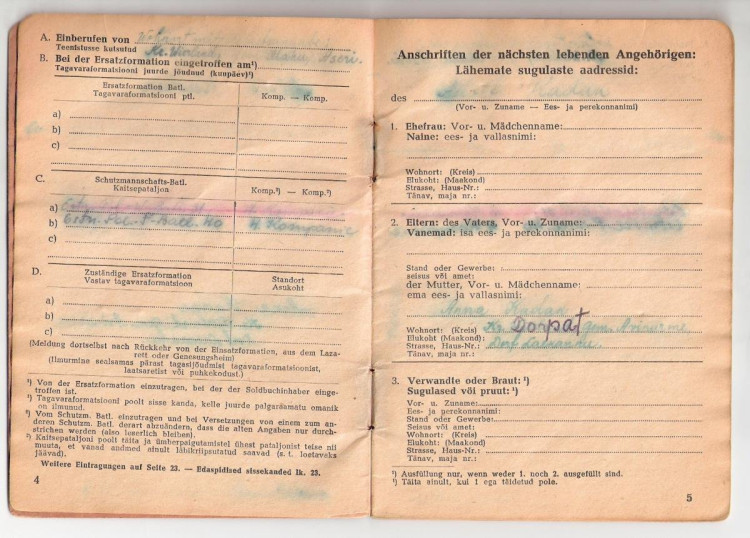 A. Einberufen von
Teenistusse kutsutud
B. Bei der Ersatzformation eingetroffen am¹)
Tagavaraformatsiooni juurde jõudnud (kuupäev)¹)
Ersatzformation Batl.
Tagavaraformatsiooni ptl.
Komp. — Komp.
a)
b)
c)
C.
Schutzmannschafts-Batl.
Kaitsepataljon
Komp.³) — Komp.³)
a)
b) Batl. 40 Kompanie
c)
D.
Zuständige Ersatzformation
Vastav tagavaraformatsioon
Standort
Asukoht
a)
b)
c)
(Meldung dortselbst nach Rückkehr von der Einsatzformation, aus dem Laza-
rett oder Genesungsheim)
(Ilmurmine sealsamas pärast tagasijõudmist tagavaraformatsioonist,
laatsaretist või puhkekodust.)
¹) Von der Ersatzformation einzutragen, bei der der Soldbuchinhaber einge-
troffen ist.
¹) Tagavaraformatsiooni poolt sisse kanda, kelle juurde palgaraamatu omanik
on ilmunud.
³) Vom Schutzm. Batl. einzutragen und bei Versetzungen von einem zum an-
deren Schutzm. Batl. derart abzuändern, dass die alten Angaben nur durch-
strichen werden (also leserlich bleiben).
³) Kaitsepataljoni poolt täita ja ümberpaigutamistel ühest pataljonist teise nii
muuta, et vanad andmed ainult läbikriipsutatud saavad (s. t. loetavaks
jäävad).
Weitere Eintragungen auf Seite 23. — Edaspidised sissekanded lk. 23.
4
Anschriften der nächsten lebenden Angehörigen:
Lähemate sugulaste aadressid:
des
(Vor- u. Zuname — Ees- ja perekonnanimi)
1. Ehefrau: Vor- u. Mädchenname:
Naine: ees- ja vallasnimi:
Wohnort: (Kreis)
Elukoht: (Maakond)
Strasse, Haus-Nr.:
Tänav, maja nr.:
2. Eltern: des Vaters, Vor- u. Zuname:
Vanemad: isa ees- ja perekonnanimi:
Stand oder Gewerbe:
seisus või amet:
der Mutter, Vor- u. Mädchenname:
ema ees- ja vallasnimi:
Anna
Wohnort: (Kreis) Kr. Dorpat
Elukoht (Maakond)
Strasse, Haus-Nr.: Dorf
Tänav, maja nr.:
3. Verwandte oder Braut: ¹)
Sugulased või pruut: ¹)
Vor- u. Zuname:
Ees- ja perekonnanimi:
Stand oder Gewerbe:
Seisus või amet:
Wohnort: (Kreis)
Elukoht: (Maakond)
Strasse, Haus-Nr.:
Tänav, maja nr.:
¹) Ausfüllung nur, wenn weder 1. noch 2. ausgefüllt sind.
¹) Täita ainult, kui 1 ega 2 täidetud pole.
5